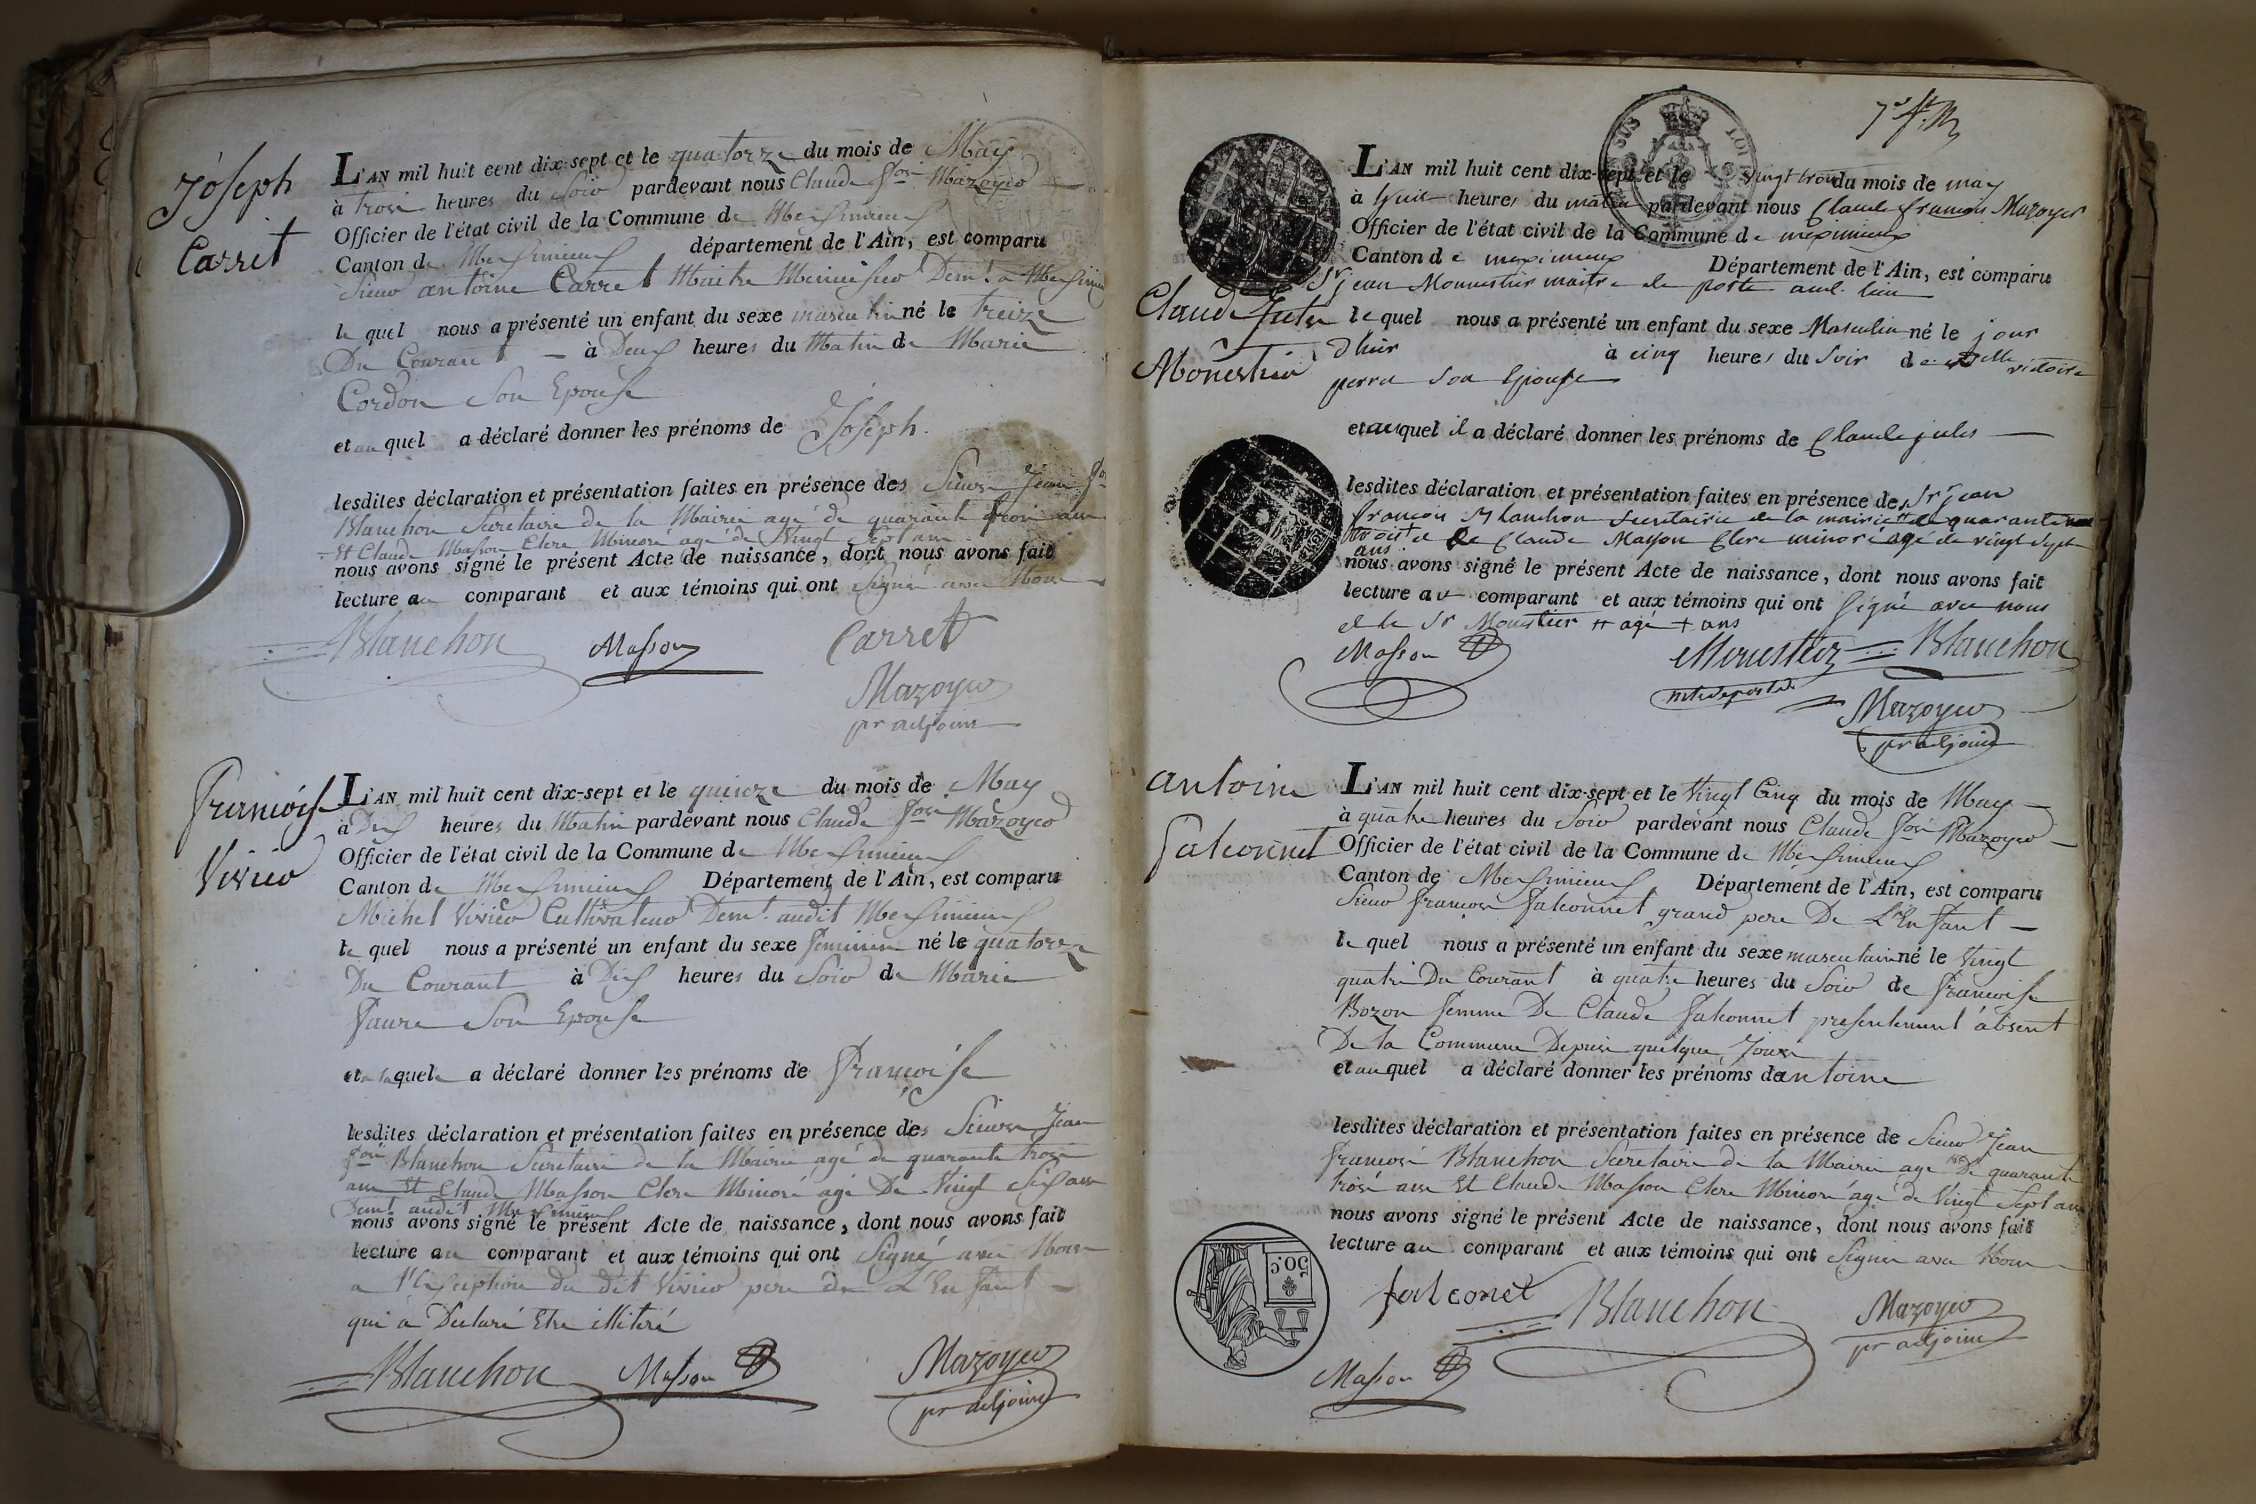 Joseph
Carret
L'AN mil huit cent dix-sept et le quatorze du mois de May
à trois heures du Soir pardevant nous Claude fois Mazoyer
Officier de l'état civil de la Commune de Meximieux
Canton de Meximieux département de l'Ain, est comparu
Sieur antoine Carret Maitre Menuisier Demt a Meximieux
le quel nous a présenté un enfant du sexe masculin né le treize
Du Courant à Deux heures du Matin de Marie
Cordon Son Epouse
et au quel a déclaré donner les prénoms de Joseph.
lesdites déclaration et présentation faites en présence des Sieurs Jean fois
Blanchon Secretaire de la Mairie agé de quarante trois ans
Et Claude Masson Clere Minoré agé de Vingt Sept ans
nous avons signé le présent Acte de naissance, dont nous avons fait
lecture au comparant et aux témoins qui ont Signé avec Nous
Blanchon Masson Carret
Mazoyer
pr adjoint
Françoise
Vivier
L'AN mil huit cent dix-sept et le quinze du mois de May
à Dix heures du Matin pardevant nous Claude fois Mazoyer
Officier de l'état civil de la Commune de Meximieux
Canton de Meximieux Département de l'Ain, est comparu
Michel Vivier Cultivateur Demt. audit Meximieux
le quel nous a présenté un enfant du sexe feminin né le quatorze
Du Courant à Dix heures du Soir de Marie
Faure Son Epouse
et a laquele a déclaré donner les prénoms de Françoise
lesdites déclaration et présentation faites en présence des Sieurs Jean
fois Blanchon Secretaire de la Mairie agé de quarante trois
ans Et Claude Masson Clere Minoré agé De Vingt Six ans
Demt audit Meximieux
nous avons signé le présent Acte de naissance, dont nous avons fait
lecture au comparant et aux témoins qui ont Signé avec Nous
a l'Exception du dit Vivier pere de L'Enfant
qui a Declaré Etre illiteré
Blanchon Masson Mazoyer
pr adjoint
7e f.
L'AN mil huit cent dix-sept et le vingt trois du mois de may
à huit heures du matin pardevant nous Claude françois Mazoyer
Officier de l'état civil de la Commune de meximieux
Canton de meximieux Département de l'Ain, est comparu
Sr jean Monnestier maitre de poste aud. lieu
Claude Jules
Monestier
le quel nous a présenté un enfant du sexe Masculin né le jour
d'hier à cinq heures du Soir de delle victoire
perra son Epouse
et au quel il a déclaré donner les prénoms de Claude jules
lesdites déclaration et présentation faites en présence de Sr jean
françois Blanchon secretaire de la mairie †† de quarante
trois † et de Claude Masson Clere minoré agé de vingt Sept
ans.
nous avons signé le présent Acte de naissance, dont nous avons fait
lecture au comparant et aux témoins qui ont Signé avec nous
et le Sr Monestier †† agé † ans
Masson Monestier Blanchon
mtre de poste
Mazoyer
pr adjoint
antoine
falconnet
L'AN mil huit cent dix-sept et le Vingt Cinq du mois de May
à quatre heures du Soir pardevant nous Claude fois Mazoyer
Officier de l'état civil de la Commune de Meximieux
Canton de Meximieux Département de l'Ain, est comparu
Sieur François Falconnet grand pere De L'Enfant
le quel nous a présenté un enfant du sexe masculain né le Vingt
quatre Du Courant à quatre heures du Soir de Françoise
Bozon femme De Claude Falconnet presentement absent
De la Commune Depuis quelque Jours
et au quel a déclaré donner les prénoms de antoine
lesdites déclaration et présentation faites en présence de Sieur Jean
François Blanchon Secretaire de la Mairie age De quarante
trois ans Et Claude Masson Clere Minoré agé de Vingt Sept ans
nous avons signé le présent Acte de naissance, dont nous avons fait
lecture au comparant et aux témoins qui ont Signer avec Nous
50 c.
falconet Blanchon Mazoyer
pr adjoint
Masson